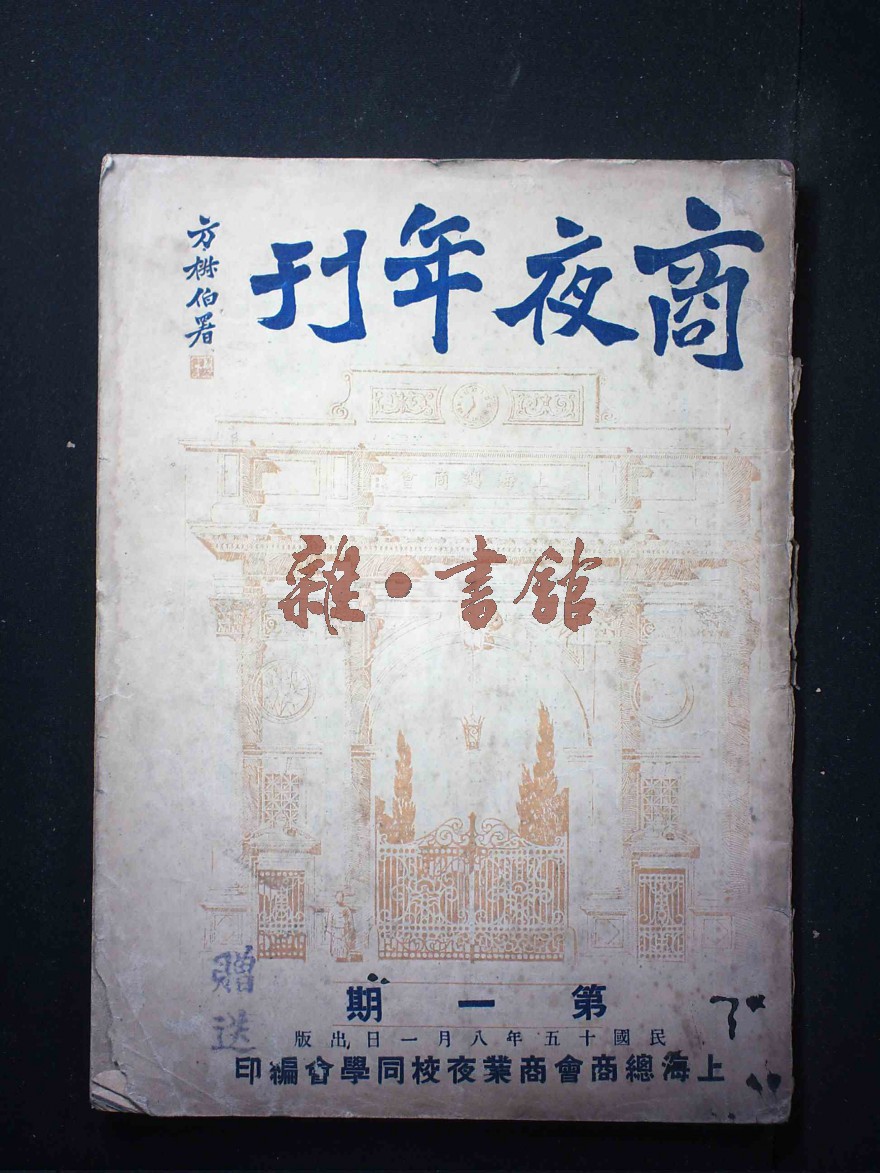 商夜年刊
方樹伯署
上海總商會
雜·書館
第一期
民國十五年八月一日出版
上海總商會商業夜校同學會編印
贈送